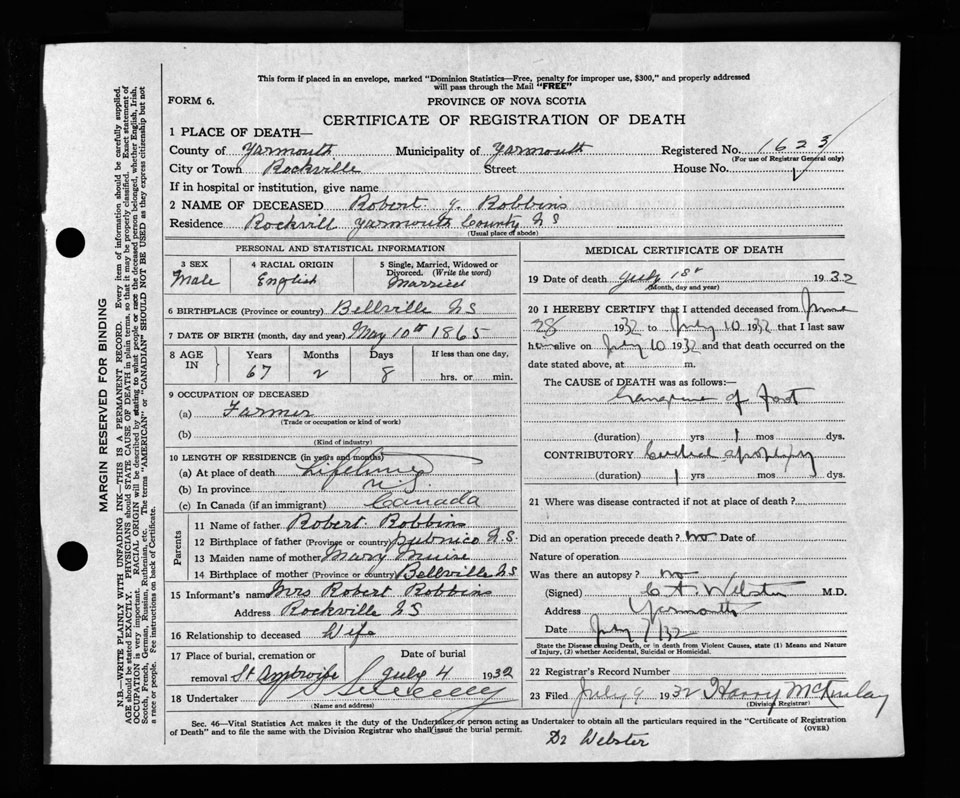 This form if placed in an envelope, marked "Dominion Statistics—Free, penalty for improper use, $300," and properly addressed
will pass through the Mail "FREE"
FORM 6.
PROVINCE OF NOVA SCOTIA
CERTIFICATE OF REGISTRATION OF DEATH
1 PLACE OF DEATH—
County of Yarmouth Municipality of Yarmouth Registered No. 1623
(For use of Registrar General only)
City or Town Rockville Street House No.
If in hospital or institution, give name
2 NAME OF DECEASED Robert J. Robbins
Residence Rockvill Yarmouth County N S
(Usual place of abode)
PERSONAL AND STATISTICAL INFORMATION
3 SEX 4 RACIAL ORIGIN 5 Single, Married, Widowed or
Divorced. (Write the word)
Male English Married
6 BIRTHPLACE (Province or country) Bellville N S
7 DATE OF BIRTH (month, day and year) May 10th 1865
8 AGE IN Years Months Days If less than one day,
67 2 8 hrs. or min.
9 OCCUPATION OF DECEASED
(a) Farmer
(Trade or occupation or kind of work)
(b)
(Kind of industry)
10 LENGTH OF RESIDENCE (in years and months)
(a) At place of death Lifetime
(b) In province
(c) In Canada (if an immigrant) Canada
Parents
11 Name of father Robert Robbins
12 Birthplace of father (Province or country) Pubnico N.S.
13 Maiden name of mother Mary Muise
14 Birthplace of mother (Province or country) Bellville N S
15 Informant's name Mrs Robert Robbins
Address Rockville N S
16 Relationship to deceased Wife
17 Place of burial, cremation or Date of burial
removal St Ambroise July 4 1932
18 Undertaker
(Name and address)
MEDICAL CERTIFICATE OF DEATH
19 Date of death July 1st 1932
(Month, day and year)
20 I HEREBY CERTIFY that I attended deceased from June
28 1932 to July 10 1932 that I last saw
h alive on July 10 1932 and that death occurred on the
date stated above, at m.
The CAUSE of DEATH was as follows:
Gangrene of foot
(duration) yrs 1 mos dys.
CONTRIBUTORY Cerebral apoplexy
(duration) 1 yrs mos dys.
21 Where was disease contracted if not at place of death?
Did an operation precede death? no Date of
Nature of operation
Was there an autopsy? no
(Signed) C. A. Webster M.D.
Address Yarmouth
Date July 7/32
State the Disease causing Death, or in death from Violent Causes, state (1) Means and Nature
of Injury, (2) whether Accidental, Suicidal or Homicidal.
22 Registrar's Record Number
23 Filed July 9 1932 Harry McKinlay
(Division Registrar)
Sec. 46—Vital Statistics Act makes it the duty of the Undertaker or person acting as Undertaker to obtain all the particulars required in the "Certificate of Registration
of Death" and to file the same with the Division Registrar who shall issue the burial permit.
(OVER)
Dr Webster
MARGIN RESERVED FOR BINDING
N.B.—WRITE PLAINLY WITH UNFADING INK—THIS IS A PERMANENT RECORD. Every item of information should be carefully supplied.
AGE should be stated EXACTLY. PHYSICIANS should STATE CAUSE OF DEATH in plain terms, so that it may be properly classified. Exact statement of
OCCUPATION is very important. RACIAL ORIGIN will be described by stating to what people or race the deceased person belonged, whether English, Irish,
Scotch, French, German, Russian, Ruthenian, etc. The terms "AMERICAN" or "CANADIAN" SHOULD NOT BE USED as they express citizenship but not
a race or people. Fee instructions on back of Certificate.